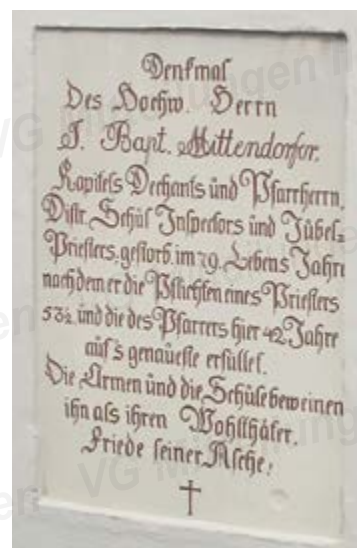 Denkmal
Des Hochw. Herrn
J. Bapt. Mittendorfer.
Kapitels Dechants und Pfarrherrn,
Distr. Schul Inspectors und Jubel=
Priesters, gestorb. im 79. Lebens Jahre
nach dem er die Pflichten eines Priesters
53½ und die des Pfarrers hier 42 Jahre
auf's genaueste erfüllet.
Die Armen und die Schule beweinen
ihn als ihren Wohlthäter.
Friede seiner Asche!